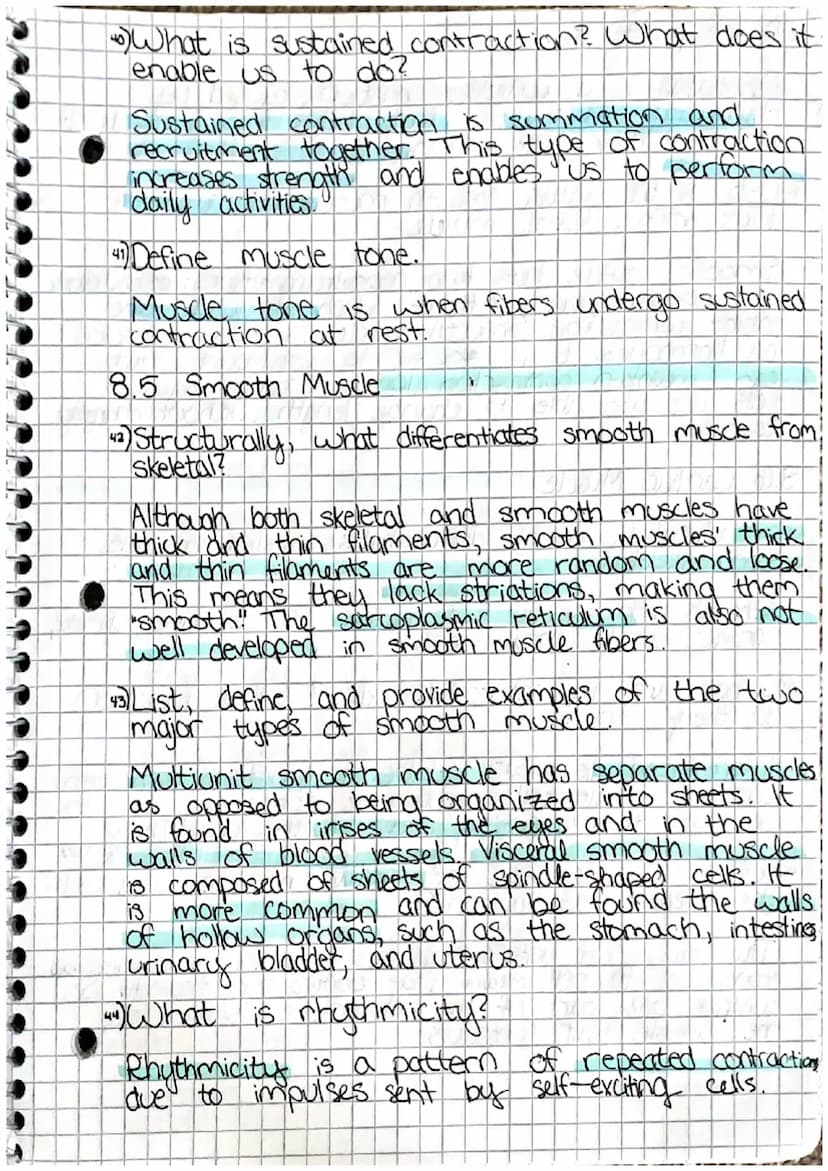 40) What is sustained contraction? What does it
enable us to do?
Sustained contraction is summation and
recruitment together. This type of contraction
increases strength and enables us to perform
daily activities.
41) Define muscle tone.
Muscle tone is when fibers undergo sustained
contraction at rest.
8.5 Smooth Muscle
42) Structurally, what differentiates smooth muscle from
skeletal?
Although both skeletal and smooth muscles have
thick and thin filaments, smooth muscles' thick
and thin filaments are more random and loose.
This means they lack striations, making them
"smooth". The sarcoplasmic reticulum is also not
well developed in smooth muscle fibers.
43) List, define, and provide examples of the two
major types of smooth muscle.
Multiunit smooth muscle has separate muscles
as opposed to being organized into sheets. It
is found in irises of the eyes and in the
walls of blood vessels. Visceral smooth muscle
is composed of sheets of spindle-shaped cells. It
is more common and can be found the walls
of hollow organs, such as the stomach, intestines
urinary bladder, and uterus.
44) What is rhythmicity?
Rhythmicity is a pattern of repeated contractions
due to impulses sent by self-exciting cells.